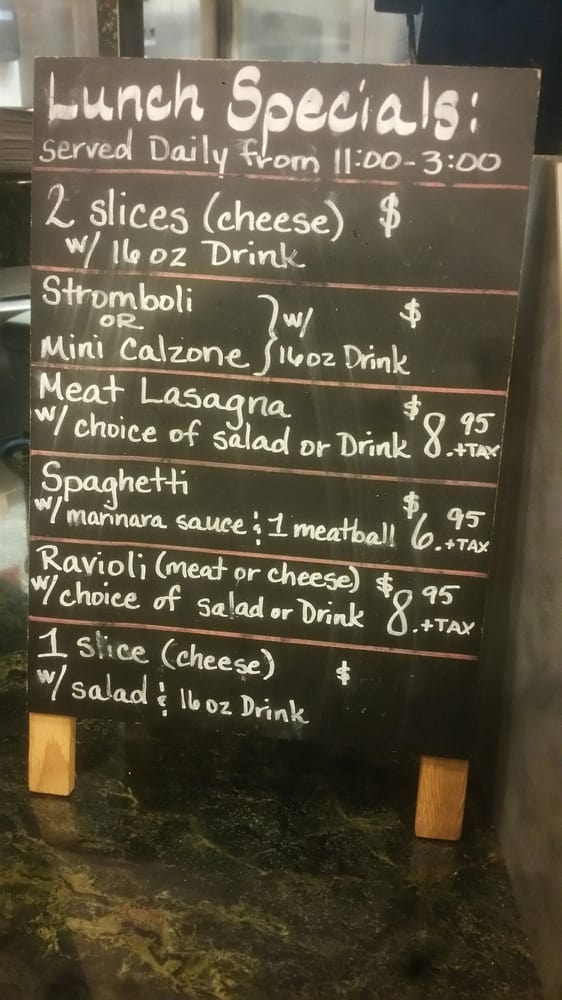 Lunch Specials:
served Daily from 11:00-3:00
2 slices (cheese) $
w/ 16 oz Drink
Stromboli
OR
Mini Calzone } w/ 16oz Drink $
Meat Lasagna
w/ choice of salad or Drink $8.95 +TAX
Spaghetti
w/ marinara sauce & 1 meatball $6.95 +TAX
Ravioli (meat or cheese)
w/ choice of salad or Drink $8.95 +TAX
1 slice (cheese) $
w/ salad & 16 oz Drink